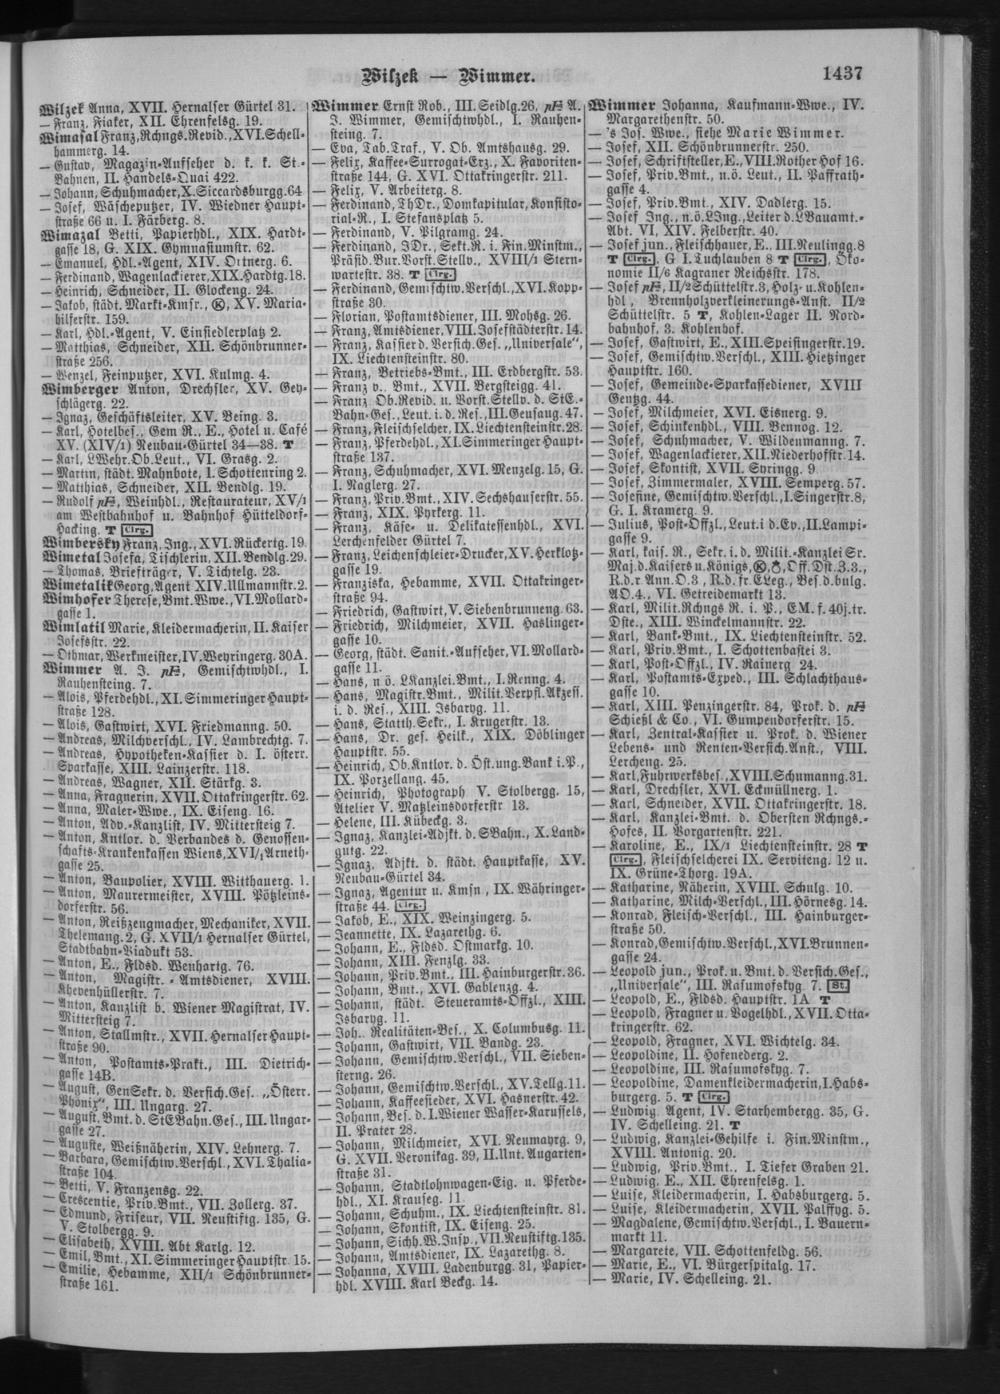 Wilzek — Wimmer.
1437
Wilzek Anna, XVII. Hernalser Gürtel 31.
— Franz, Fiaker, XII. Ehrenfelsg. 19.
Wimasal Franz, Rchngs.Revid., XVI. Schell-
hammerg. 14.
— Gustav, Magazin-Aufseher d. k. k. St.-
Bahnen, II. Handels-Quai 422.
— Johann, Schuhmacher, X. Siccardsburgg. 64
— Josef, Wäscheputzer, IV. Wiedner Haupt-
straße 66 u. I. Färberg. 8.
Wimazal Betti, Papierhdl., XIX. Hardt-
gasse 18, G. XIX. Gymnasiumstr. 62.
— Emanuel, Hdl.-Agent, XIV. Ortnerg. 6.
— Ferdinand, Wagenlackierer, XIX. Hardtg. 18.
— Heinrich, Schneider, II. Glockeng. 24.
— Jakob, städt. Markt-Kmsr., Ⓚ, XV. Maria-
hilferstr. 159.
— Karl, Hdl.-Agent, V. Einsiedlerplatz 2.
— Matthias, Schneider, XII. Schönbrunner-
straße 256.
— Wenzel, Feinputzer, XVI. Kulmg. 4.
Wimberger Anton, Drechsler, XV. Gey-
schlägerg. 22.
— Ignaz, Geschäftsleiter, XV. Being. 3.
— Karl, Hotelbes., Gem R., E., Hotel u. Café
XV. (XIV/1) Neubau-Gürtel 34—38. T
— Karl, LWehr.Ob.Leut., VI. Grasg. 2.
— Martin, städt. Mahnbote, I. Schottenring 2.
— Matthias, Schneider, XII. Bendlg. 19.
— Rudolf, Weinhdl., Restaurateur, XV/1
am Westbahnhof u. Bahnhof Hütteldorf-
Hacking. T Clrg.
Wimbersky Franz, Ing., XVI. Rückertg. 19
Wimetal Josefa, Tischlerin, XII. Bendlg. 29.
— Thomas, Briefträger, V. Tichtelg. 23.
Wimetalik Georg, Agent XIV. Ullmannstr. 2.
Wimhofer Therese, Bmt.Wwe., VI. Mollard-
gasse 1.
Wimlatil Marie, Kleidermacherin, II. Kaiser
Josefsstr. 22.
— Othmar, Werkmeister, IV. Weyringerg. 30A.
Wimmer A. J., Gemischtwhdl., I.
Rauhensteing. 7.
— Alois, Pferdehdl., XI. Simmeringer Haupt-
straße 128.
— Alois, Gastwirt, XVI. Friedmanng. 50.
— Andreas, Milchverschl., IV. Lambrechtg. 7.
— Andreas, Hypotheken-Kassier d. I. österr.
Sparkasse, XIII. Lainzerstr. 118.
— Andreas, Wagner, XII. Stärkg. 3.
— Anna, Fragnerin, XVII. Ottakringerstr. 62.
— Anna, Maler-Wwe., IX. Eiseng. 16.
— Anton, Adv.-Kanzlist, IV. Mittersteig 7.
— Anton, Kntlor. d. Verbandes d. Genossen-
schafts-Krankenkassen Wiens, XVI/1 Arneth-
gasse 25.
— Anton, Baupolier, XVIII. Witthauerg. 1.
— Anton, Maurermeister, XVIII. Pötzleins-
dorferstr. 56.
— Anton, Reißzeugmacher, Mechaniker, XVII.
Thelemang. 2, G. XVII/1 Hernalser Gürtel,
Stadtbahn-Viadukt 53.
— Anton, E., Fldsd. Wenhartg. 76.
— Anton, Magistr.-Amtsdiener, XVIII.
Khevenhüllerstr. 7.
— Anton, Kanzlist b. Wiener Magistrat, IV.
Mittersteig 7.
— Anton, Stallmstr., XVII. Hernalser Haupt-
straße 90.
— Anton, Postamts-Prakt., III. Dietrich-
gasse 14B.
— August, GenSekr. d. Versich.Ges. „Österr.
Phönix“, III. Ungarg. 27.
— August, Bmt. d. StEBahn.Ges., III. Ungar-
gasse 27.
— Auguste, Weißnäherin, XIV. Lehnerg. 7.
— Barbara, Gemischtw.Verschl., XVI. Thalia-
straße 104
— Betti, V. Franzensg. 22.
— Crescentie, Priv.Bmt., VII. Zollerg. 37.
— Edmund, Friseur, VII. Neustiftg. 135, G.
V. Stolbergg. 9.
— Elisabeth, XVIII. Abt Karlg. 12.
— Emil, Bmt., XI. Simmeringer Hauptstr. 15.
— Emilie, Hebamme, XII/1 Schönbrunner-
straße 161.
Wimmer Ernst Rob., III. Seidlg. 26, A.
J. Wimmer, Gemischtwhdl., I. Rauhen-
steing. 7.
— Eva, Tab.Traf., V. Ob. Amtshausg. 29.
— Felix, Kaffee-Surrogat-Erz., X. Favoriten-
straße 144, G. XVI. Ottakringerstr. 211.
— Felix, V. Arbeiterg. 8.
— Ferdinand, ThDr., Domkapitular, Konsisto-
rial-R., I. Stefansplatz 5.
— Ferdinand, V. Pilgramg. 24.
— Ferdinand, JDr., Sekt.R. i. Fin.Minstm.,
Präsid.Bur.Vorst.Stellv., XVIII/1 Stern-
wartestr. 38. T Clrg.
— Ferdinand, Gemischtw.Verschl., XVI. Kopp-
straße 30.
— Florian, Postamtsdiener, III. Mohsg. 26.
— Franz, Amtsdiener, VIII. Josefstädterstr. 14.
— Franz, Kassier d. Versich.Ges. „Universale“,
IX. Liechtensteinstr. 80.
— Franz, Betriebs-Bmt., III. Erdbergstr. 53.
— Franz v. Bmt., XVII. Bergsteigg. 41.
— Franz Ob.Revid. u. Vorst.Stellv. d. StE.-
Bahn-Ges., Leut. i. d. Res., III. Geusaug. 47.
— Franz, Fleischselcher, IX. Liechtensteinstr. 28.
— Franz, Pferdehdl., XI. Simmeringer Haupt-
straße 137.
— Franz, Schuhmacher, XVI. Menzelg. 15, G.
I. Naglerg. 27.
— Franz, Priv.Bmt., XIV. Sechshauserstr. 55.
— Franz, XIX. Pyrkerg. 11.
— Franz, Käse- u. Delikatessenhdl., XVI.
Lerchenfelder Gürtel 7.
— Franz, Leichenschleier-Drucker, XV. Herklotz-
gasse 19.
— Franziska, Hebamme, XVII. Ottakringer-
straße 94.
— Friedrich, Gastwirt, V. Siebenbrunneng. 63.
— Friedrich, Milchmeier, XVII. Haslinger-
gasse 10.
— Georg, städt. Sanit.-Aufseher, VI. Mollard-
gasse 11.
— Hans, n ö. LKanzlei.Bmt., I. Renng. 4.
— Hans, Magistr.Bmt., Milit.Verpfl.Akzess.
i. d. Res., XIII. Isbaryg. 11.
— Hans, Statth.Sekr., I. Krugerstr. 13.
— Hans, Dr. ges. Heilk., XIX. Döblinger
Hauptstr. 55.
— Heinrich, Ob.Kntlor. d. Öst.ung.Bank i.P.,
IX. Porzellang. 45.
— Heinrich, Photograph V. Stolbergg. 15,
Atelier V. Matzleinsdorferstr 13.
— Helene, III. Kübeckg. 3.
— Ignaz, Kanzlei-Adjkt. d. SBahn., X. Land-
gutg. 22.
— Ignaz, Adjkt. d. städt. Hauptkasse, XV.
Neubau-Gürtel 34.
— Ignaz, Agentur u. Kmsn., IX. Währinger-
straße 44. Clrg.
— Jakob, E., XIX. Weinzingerg. 5.
— Jeannette, IX. Lazarethg. 6.
— Johann, E., Fldsd. Ostmarkg. 10.
— Johann, XIII. Fenzlg. 33.
— Johann, Priv.Bmt., III. Hainburgerstr. 36.
— Johann, Bmt., XVI. Gablenzg. 4.
— Johann, städt. Steueramts-Offzl., XIII.
Isbaryg. 11.
— Joh., Realitäten-Bes., X. Columbusg. 11.
— Johann, Gastwirt, VII. Bandg. 23.
— Johann, Gemischtw.Verschl., VII. Sieben-
sterng. 26.
— Johann, Gemischtw.Verschl., XV. Tellg. 11.
— Johann, Kaffeesieder, XVI. Hasnerstr. 42.
— Johann, Bes. d. I. Wiener Wasser-Karussels,
II. Prater 28.
— Johann, Milchmeier, XVI. Neumayrg. 9,
G. XVII. Veronikag. 39, II. Unt. Augarten-
straße 31.
— Johann, Stadtlohnwagen-Eig. u. Pferde-
hdl., XI. Krauseg. 11.
— Johann, Schuhm., IX. Liechtensteinstr. 81.
— Johann, Skontist, IX. Eiseng. 25.
— Johann, Sichh.W.Insp., VII. Neustiftg. 135.
— Johann, Amtsdiener, IX. Lazarethg. 8.
— Johanna, XVIII. Ladenburgg. 31, Papier-
hdl. XVIII. Karl Beckg. 14.
Wimmer Johanna, Kaufmann-Wwe., IV.
Margarethenstr. 50.
— 's Jos. Wwe., siehe Marie Wimmer.
— Josef, XII. Schönbrunnerstr. 250.
— Josef, Schriftsteller, E., VIII. Rother Hof 16.
— Josef, Priv.Bmt., n.ö. Leut., II. Paffrath-
gasse 4.
— Josef, Priv.Bmt., XIV. Dadlerg. 15.
— Josef Ing., n.ö.LIng., Leiter d. LBauamt.-
Abt. VI, XIV. Felberstr. 40.
— Josef jun., Fleischhauer, E., III. Neulingg. 8
T Clrg., G I. Tuchlauben 8 T Clrg., Öko-
nomie II/6 Kagraner Reichsstr. 178.
— Josef, II/2 Schüttelstr. 3, Holz- u. Kohlen-
hdl, Brennholzverkleinerungs-Anst. II/2
Schüttelstr. 5 T, Kohlen-Lager II. Nord-
bahnhof, 3. Kohlenhof.
— Josef, Gastwirt, E., XIII. Speisingerstr. 19.
— Josef, Gemischtw.Verschl., XIII. Hietzinger
Hauptstr. 160.
— Josef, Gemeinde-Sparkassediener, XVIII
Gentzg. 44.
— Josef, Milchmeier, XVI. Eisnerg. 9.
— Josef, Schinkenhdl., VIII. Bennog. 12.
— Josef, Schuhmacher, V. Wildenmanng. 7.
— Josef, Wagenlackierer, XII. Niederhofstr. 14.
— Josef, Skontist, XVII. Syringg. 9
— Josef, Zimmermaler, XVIII. Semperg. 57.
— Josefine, Gemischtw.Verschl., I. Singerstr. 8,
G. I. Kramerg. 9.
— Julius, Post-Offzl., Leut. i d. Ev., II. Lampi-
gasse 9.
— Karl, kais. R., Sekr. i. d. Milit.-Kanzlei Sr.
Maj. d. Kaisers u. Königs, Ⓚ, Off. Dst.Z.3.,
R.d.r Ann.O.3, R.d. fr. ELeg., Bes. d. bulg.
AO.4., VI. Getreidemarkt 13.
— Karl, Milit.Rchngs R. i. P., EM. f. 40j.tr.
Dste., XIII. Winckelmannstr. 22.
— Karl, Bank-Bmt., IX. Liechtensteinstr. 52.
— Karl, Priv.Bmt., I. Schottenbastei 3.
— Karl, Post-Offzl., IV. Rainerg 24.
— Karl, Postamts-Exped., III. Schlachthaus-
gasse 10.
— Karl, XIII. Penzingerstr. 84, Prok. d.
Schießl & Co., VI. Gumpendorferstr. 15.
— Karl, Zentral-Kassier u. Prok. d. Wiener
Lebens- und Renten-Versich.Anst., VIII.
Lercheng. 25.
— Karl, Fuhrwerksbes., XVIII. Schumanng. 31.
— Karl, Drechsler, XVI. Eckmüllnerg. 1.
— Karl, Schneider, XVII. Ottakringerstr. 18.
— Karl, Kanzlei-Bmt. d. Obersten Rchngs.-
Hofes, II. Vorgartenstr. 221.
— Karoline, E., IX/1 Liechtensteinstr. 28 T
Clrg., Fleischselcherei IX. Serviteng. 12 u.
IX. Grüne-Thorg. 19A.
— Katharine, Näherin, XVIII. Schulg. 10.
— Katharine, Milch-Verschl., III. Hörnesg. 14.
— Konrad, Fleisch-Verschl., III. Hainburger-
straße 50.
— Konrad, Gemischtw.Verschl., XVI. Brunnen-
gasse 24.
— Leopold jun., Prok. u. Bmt. d. Versich.Ges.,
„Universale“, III. Rasumofskyg. 7. St.
— Leopold, E., Fldsd. Hauptstr. 1A T
— Leopold, Fragner u. Vogelhdl., XVII. Otta-
kringerstr. 62.
— Leopold, Fragner, XVI. Wichtelg. 34.
— Leopoldine, II. Hofenederg. 2.
— Leopoldine, III. Rasumofskyg. 7.
— Leopoldine, Damenkleidermacherin, I. Habs-
burgerg. 5. T Clrg.
— Ludwig, Agent, IV. Starhembergg. 35, G.
IV. Schelleing. 21. T
— Ludwig, Kanzlei-Gehilfe i. Fin.Minstm.,
XVIII. Antonig. 20.
— Ludwig, Priv.Bmt., I. Tiefer Graben 21.
— Ludwig, E., XII. Ehrenfelsg. 1.
— Luise, Kleidermacherin, I. Habsburgerg. 5.
— Luise, Kleidermacherin, XVII. Palffyg. 5.
— Magdalene, Gemischtw.Verschl., I. Bauern-
markt 11.
— Margarete, VII. Schottenfeldg. 56.
— Marie, E., VI. Bürgerspitalg. 17.
— Marie, IV. Schelleing. 21.